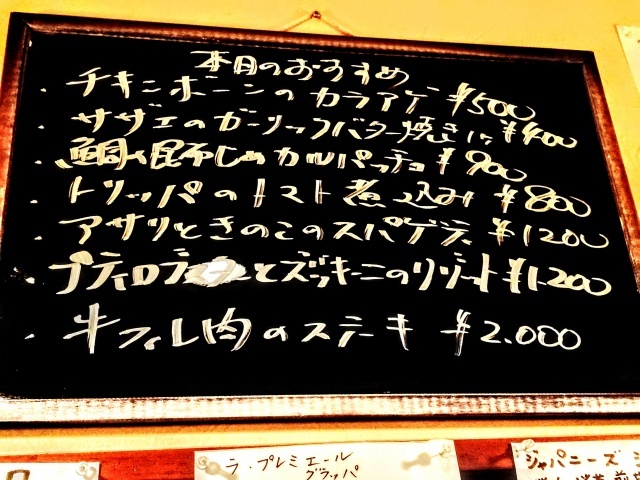 本日のおすすめ
・チキンボーンのカラアゲ ¥500
・サザエのガーリックバター焼き ¥400
・鯛の昆布じめカルパッチョ ¥900
・トリッパのトマト煮込み ¥800
・アサリときのこのスパゲティ ¥1200
とズッキーニのリゾット ¥1200
・牛フィレ肉のステーキ ¥2.000
ラ・プレミエール
グラッパ
ジャパニーズ